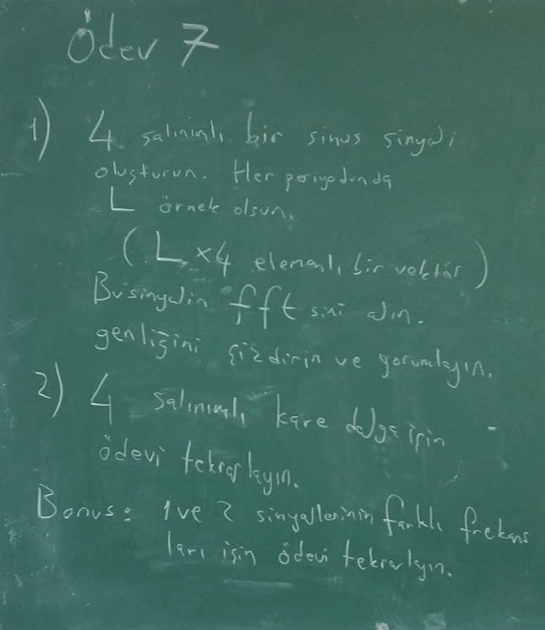 Ödev 7
1) 4 salınımlı bir sinus sinyali
oluşturun. Her periyodunda
L örnek olsun.
(L x4 elemanlı bir vektör)
Bu sinyalin fft sini alın.
genliğini çizdirin ve yorumlayın.
2) 4 salınımlı kare dalga için
ödevi tekrarlayın.
Bonus: 1 ve 2 sinyallerinin farklı frekans
ları için ödevi tekrarlayın.